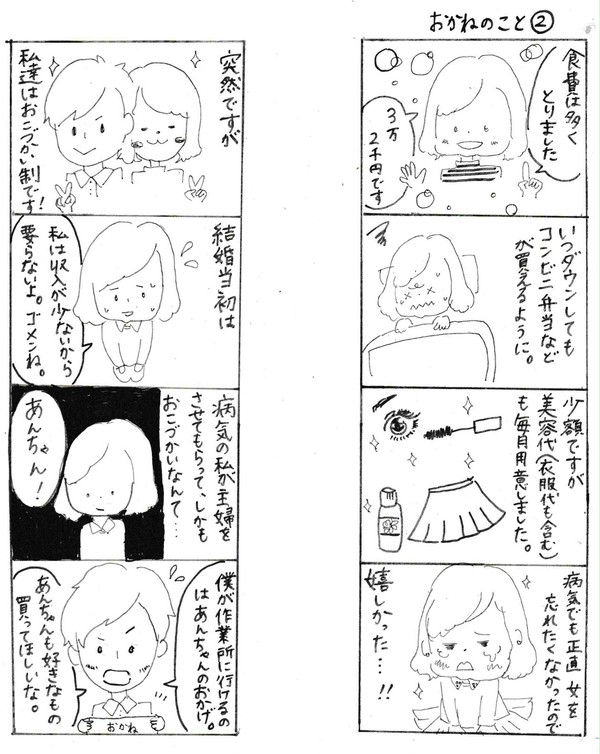 おかねのこと②
食費は多く
とりました
3万
2千円です
いつダウンしても
コンビニ弁当など
が買えるように。
少額ですが
美容代(衣服代も含む)
も毎月用意しました。
病気でも正直女を
忘れたくなかったので
嬉しかった…!!
突然ですが
私達はおこづかい制です!
結婚当初は
私は収入が少ないから
要らないよ。ゴメンね。
病気の私が主婦を
させてもらって、しかも
おこづかいなんて…
あんちゃん!
僕が作業所に行けるの
はあんちゃんのおかげ。
あんちゃんも好きなもの
買ってほしいな。
おかね